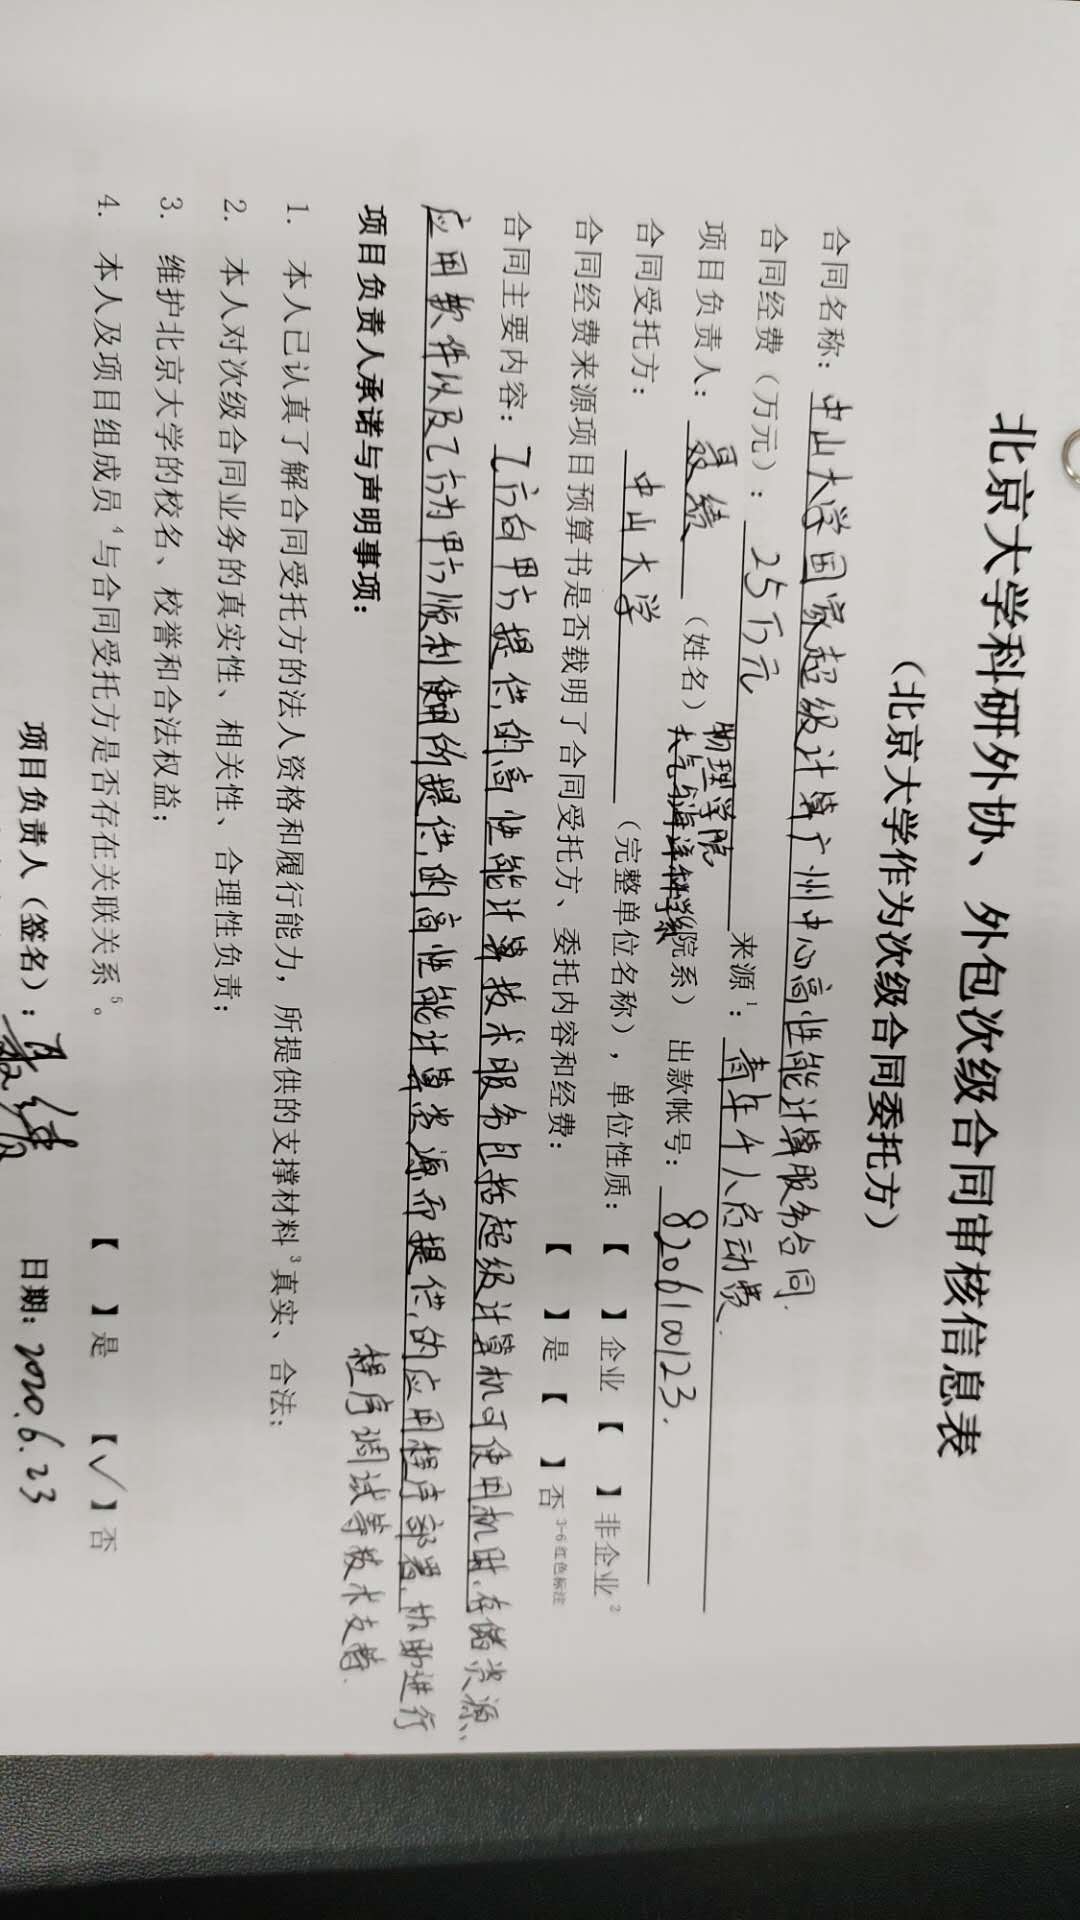 北京大学科研外协、外包次级合同审核信息表
（北京大学作为次级合同委托方）
合同名称：中山大学国家超级计算广州中心高性能计算服务合同.
合同经费（万元）：25万元 来源1：青年千人启动费.
项目负责人：聂绩（姓名）物理学院大气与海洋科学系（院系） 出款帐号：8206100123.
合同受托方：中山大学（完整单位名称），单位性质：【 】企业【 】非企业2
合同经费来源项目预算书是否载明了合同受托方、委托内容和经费：【 】是【 】否 3-6红色标注
合同主要内容：乙方向甲方提供的高性能计算技术服务包括超级计算机可使用机时、存储资源、
应用软件以及乙方为甲方顺利使用所提供的高性能计算资源而提供的应用程序部署、协助进行
程序调试等技术支持.
项目负责人承诺与声明事项：
1. 本人已认真了解合同受托方的法人资格和履行能力，所提供的支撑材料3真实、合法；
2. 本人对次级合同业务的真实性、相关性、合理性负责；
3. 维护北京大学的校名、校誉和合法权益；
4. 本人及项目组成员4与合同受托方是否存在关联关系5。 【 】是 【√】否
项目负责人（签名）：聂绩 日期：2020.6.23